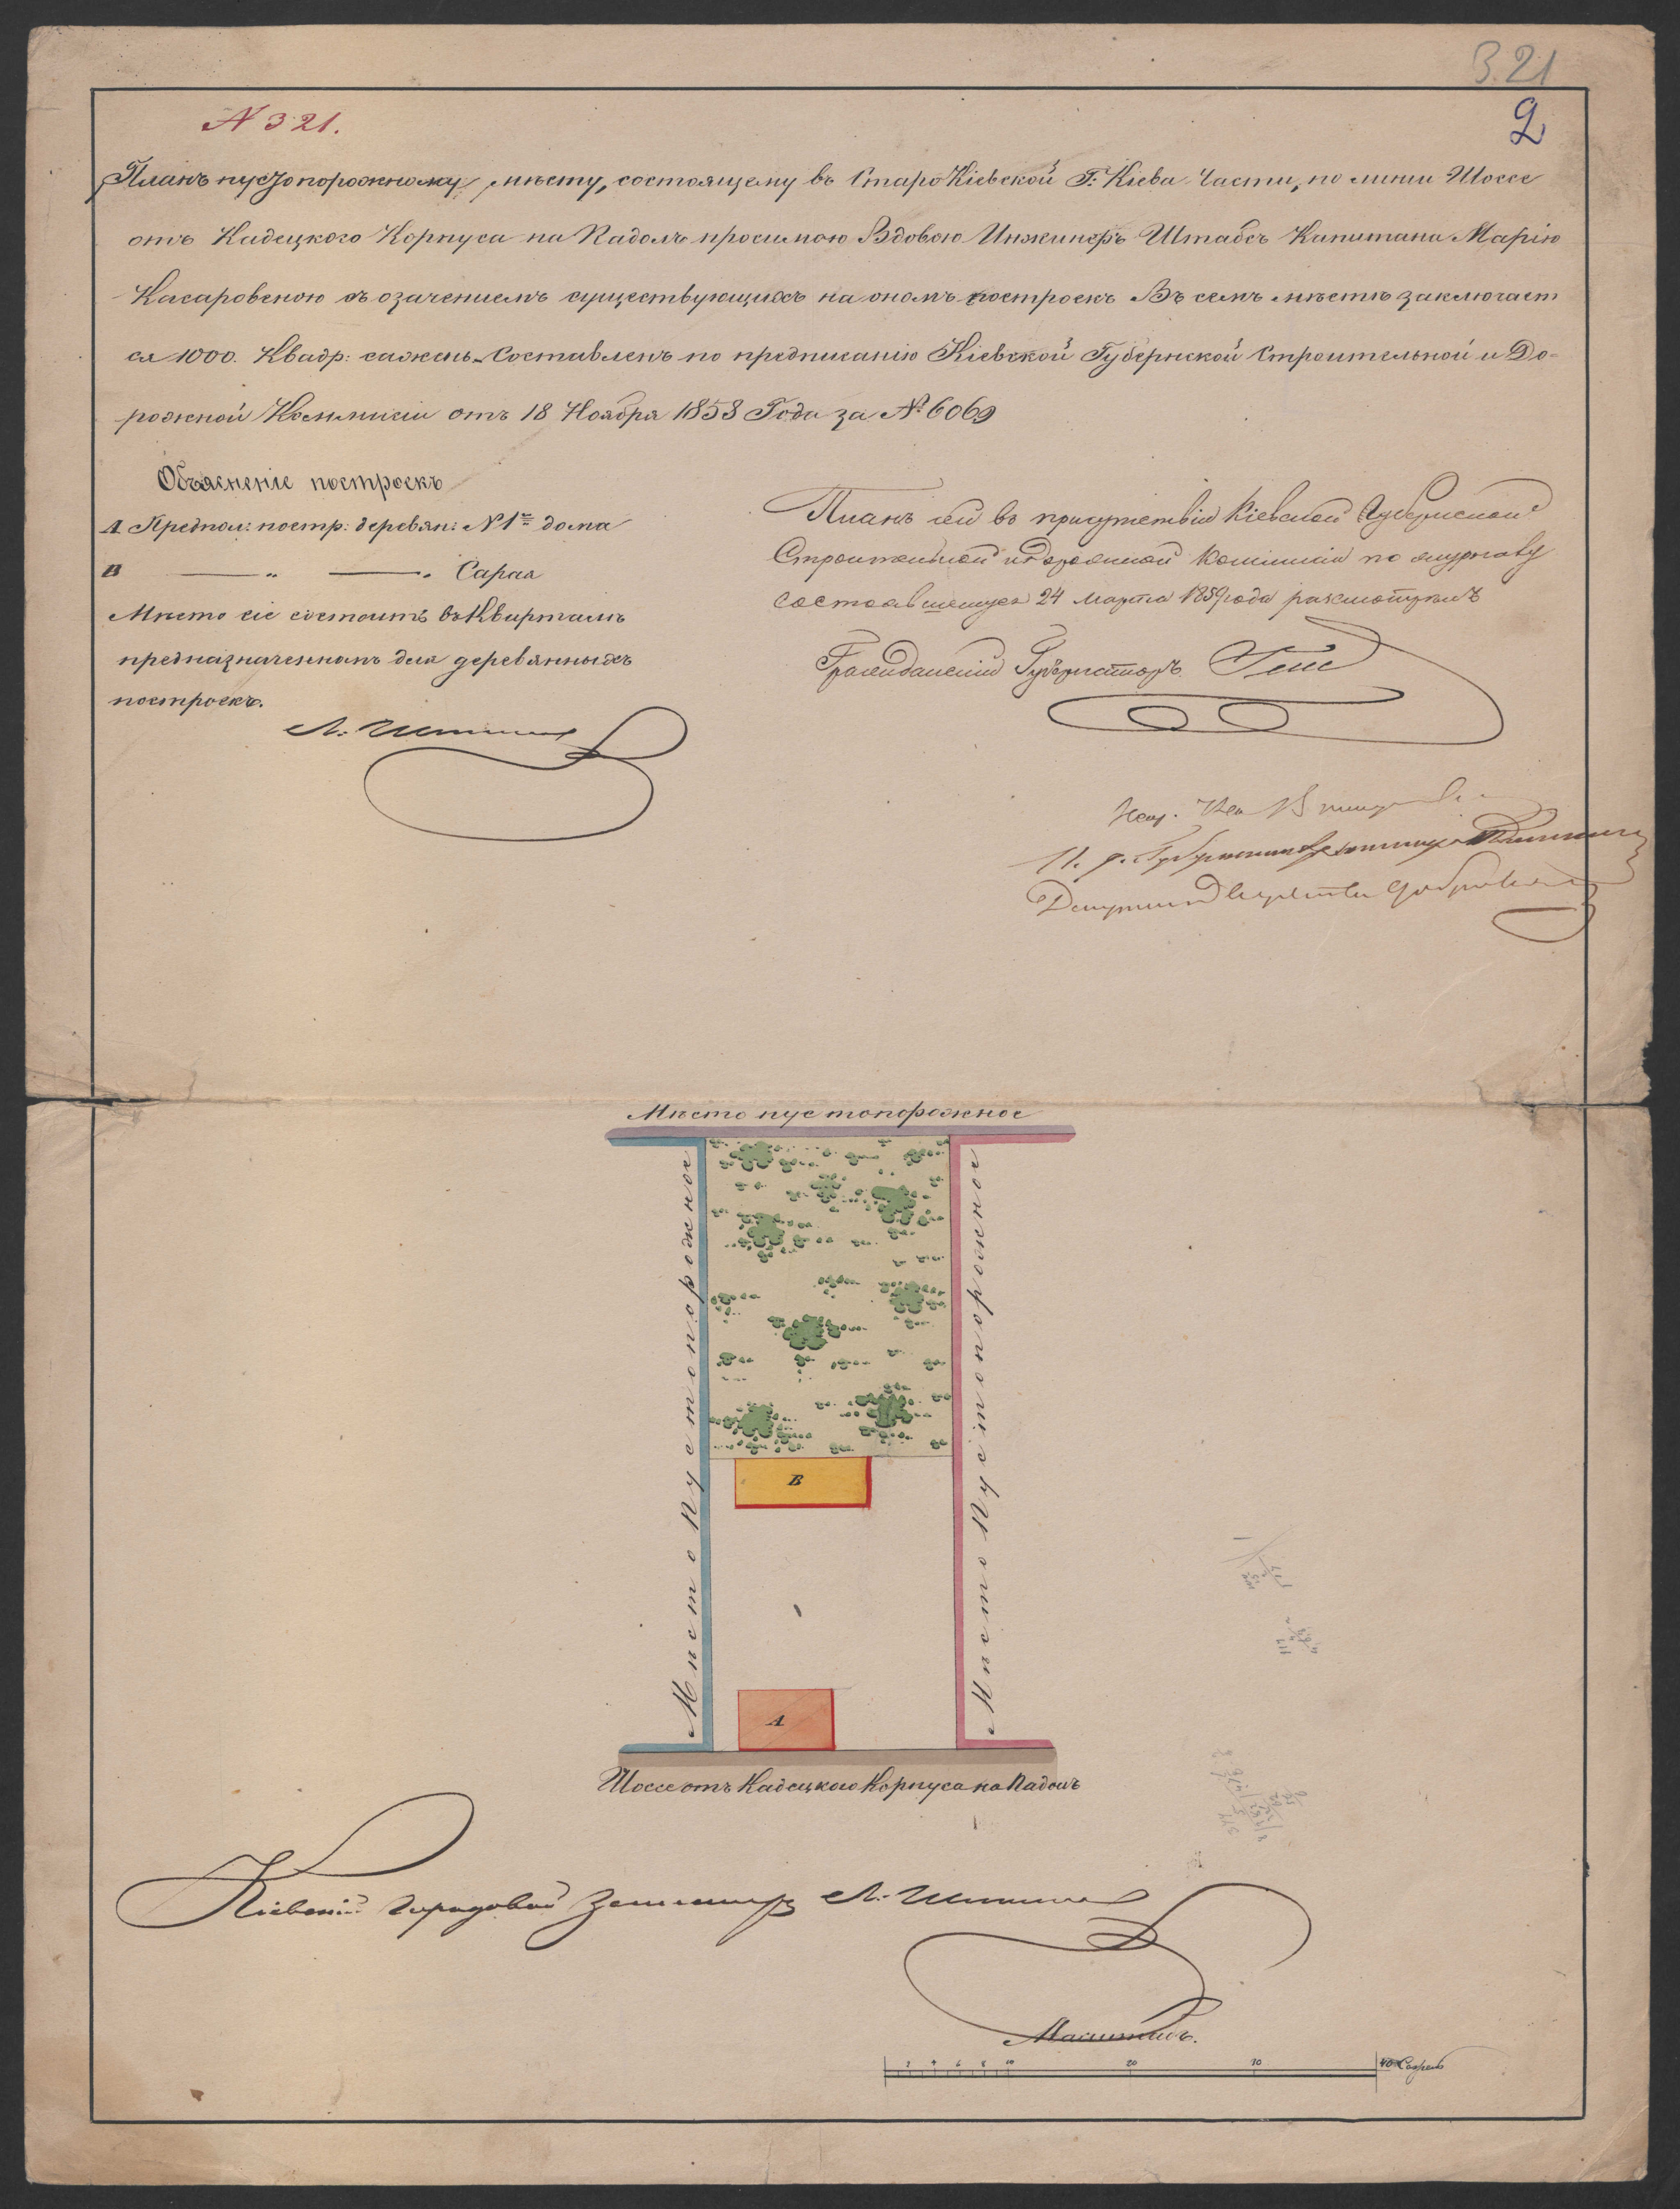 321
2
N 321.
Планъ пустопорожнему мѣсту, состоящему въ СтароКіевской Г. Кіева Части, по линіи Шоссе
отъ Кадецкого Корпуса на Падолъ просимою Вдовою Инжинеръ Штабсъ Капитана Марію
Касаровскою съ озаченіемъ существующихъ на ономъ построекъ Въ семъ мѣстѣ заключает
ся 1000. Квадр: сажень. Составленъ по предписанію Кіевской Губернской Строительной и До=
рожной Коммисіи отъ 18 Ноября 1858 Года за № 6069
Объясненіе построекъ
A Предпол: постр: деревян: N 1го дома
B — „ — „ Сарая
Мѣсто сіе состоитъ въ Кварталѣ
предназначенномъ для деревянныхъ
построекъ.
Планъ сей въ присутствіи Кіевской Губернской
Строительной и дорожной Комиссіи по журналу
состоявшемуся 24 марта 1859 года разсмотренъ
Гражданскій Губернаторъ Гессе
Мѣсто пустопорожное
Мѣсто Пустопорожное
Мѣсто Пустопорожное
B
A
Шоссе отъ Кадецкого Корпуса на Падолъ
Кіевскій Городовой Землемѣръ
Масштабъ.
2 4 6 8 10 20 30 40 Сажень